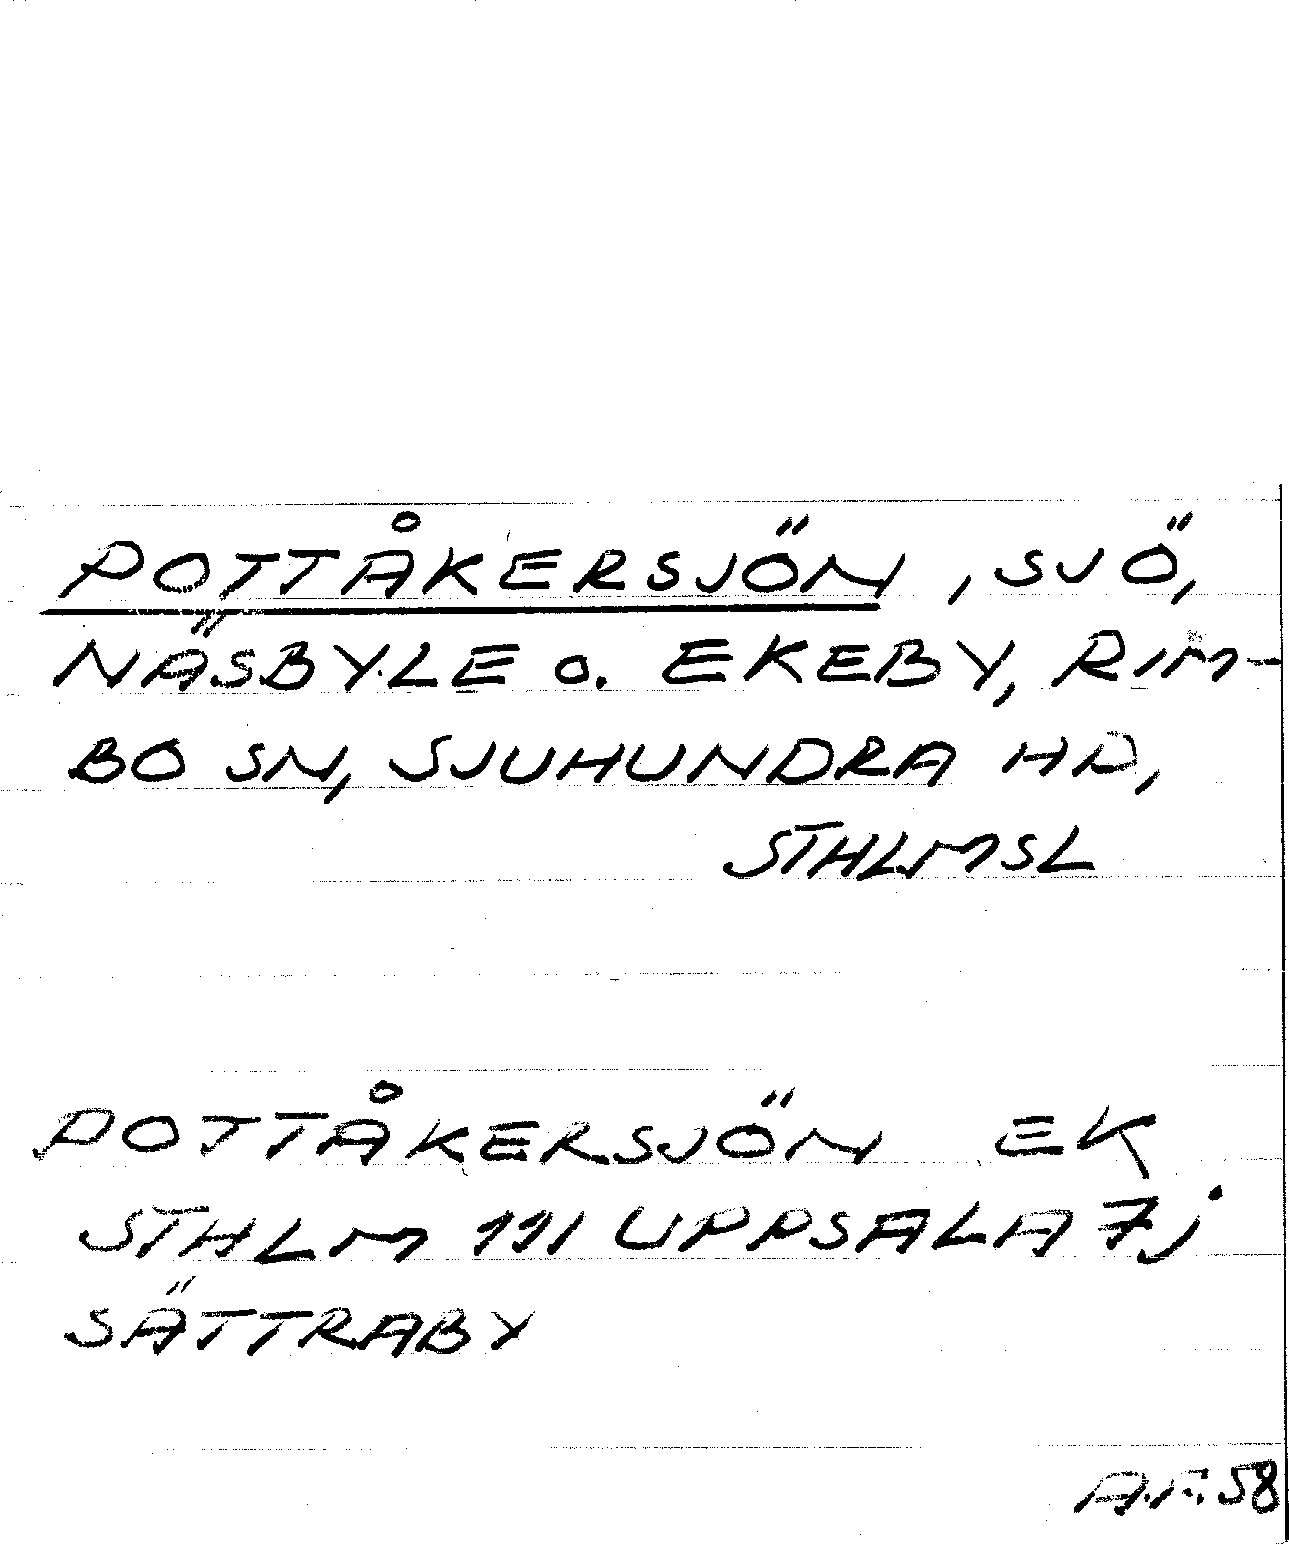 POTTÅKERSJÖN, SJÖ,
NÄSBY.LE o. EKEBY, RIM-
BO SN, SJUHUNDRA HD,
STHLMSL
POTTÅKERSJÖN EK
STHLM 111 UPPSALA 7j
SÄTTRABY
A.F. 58